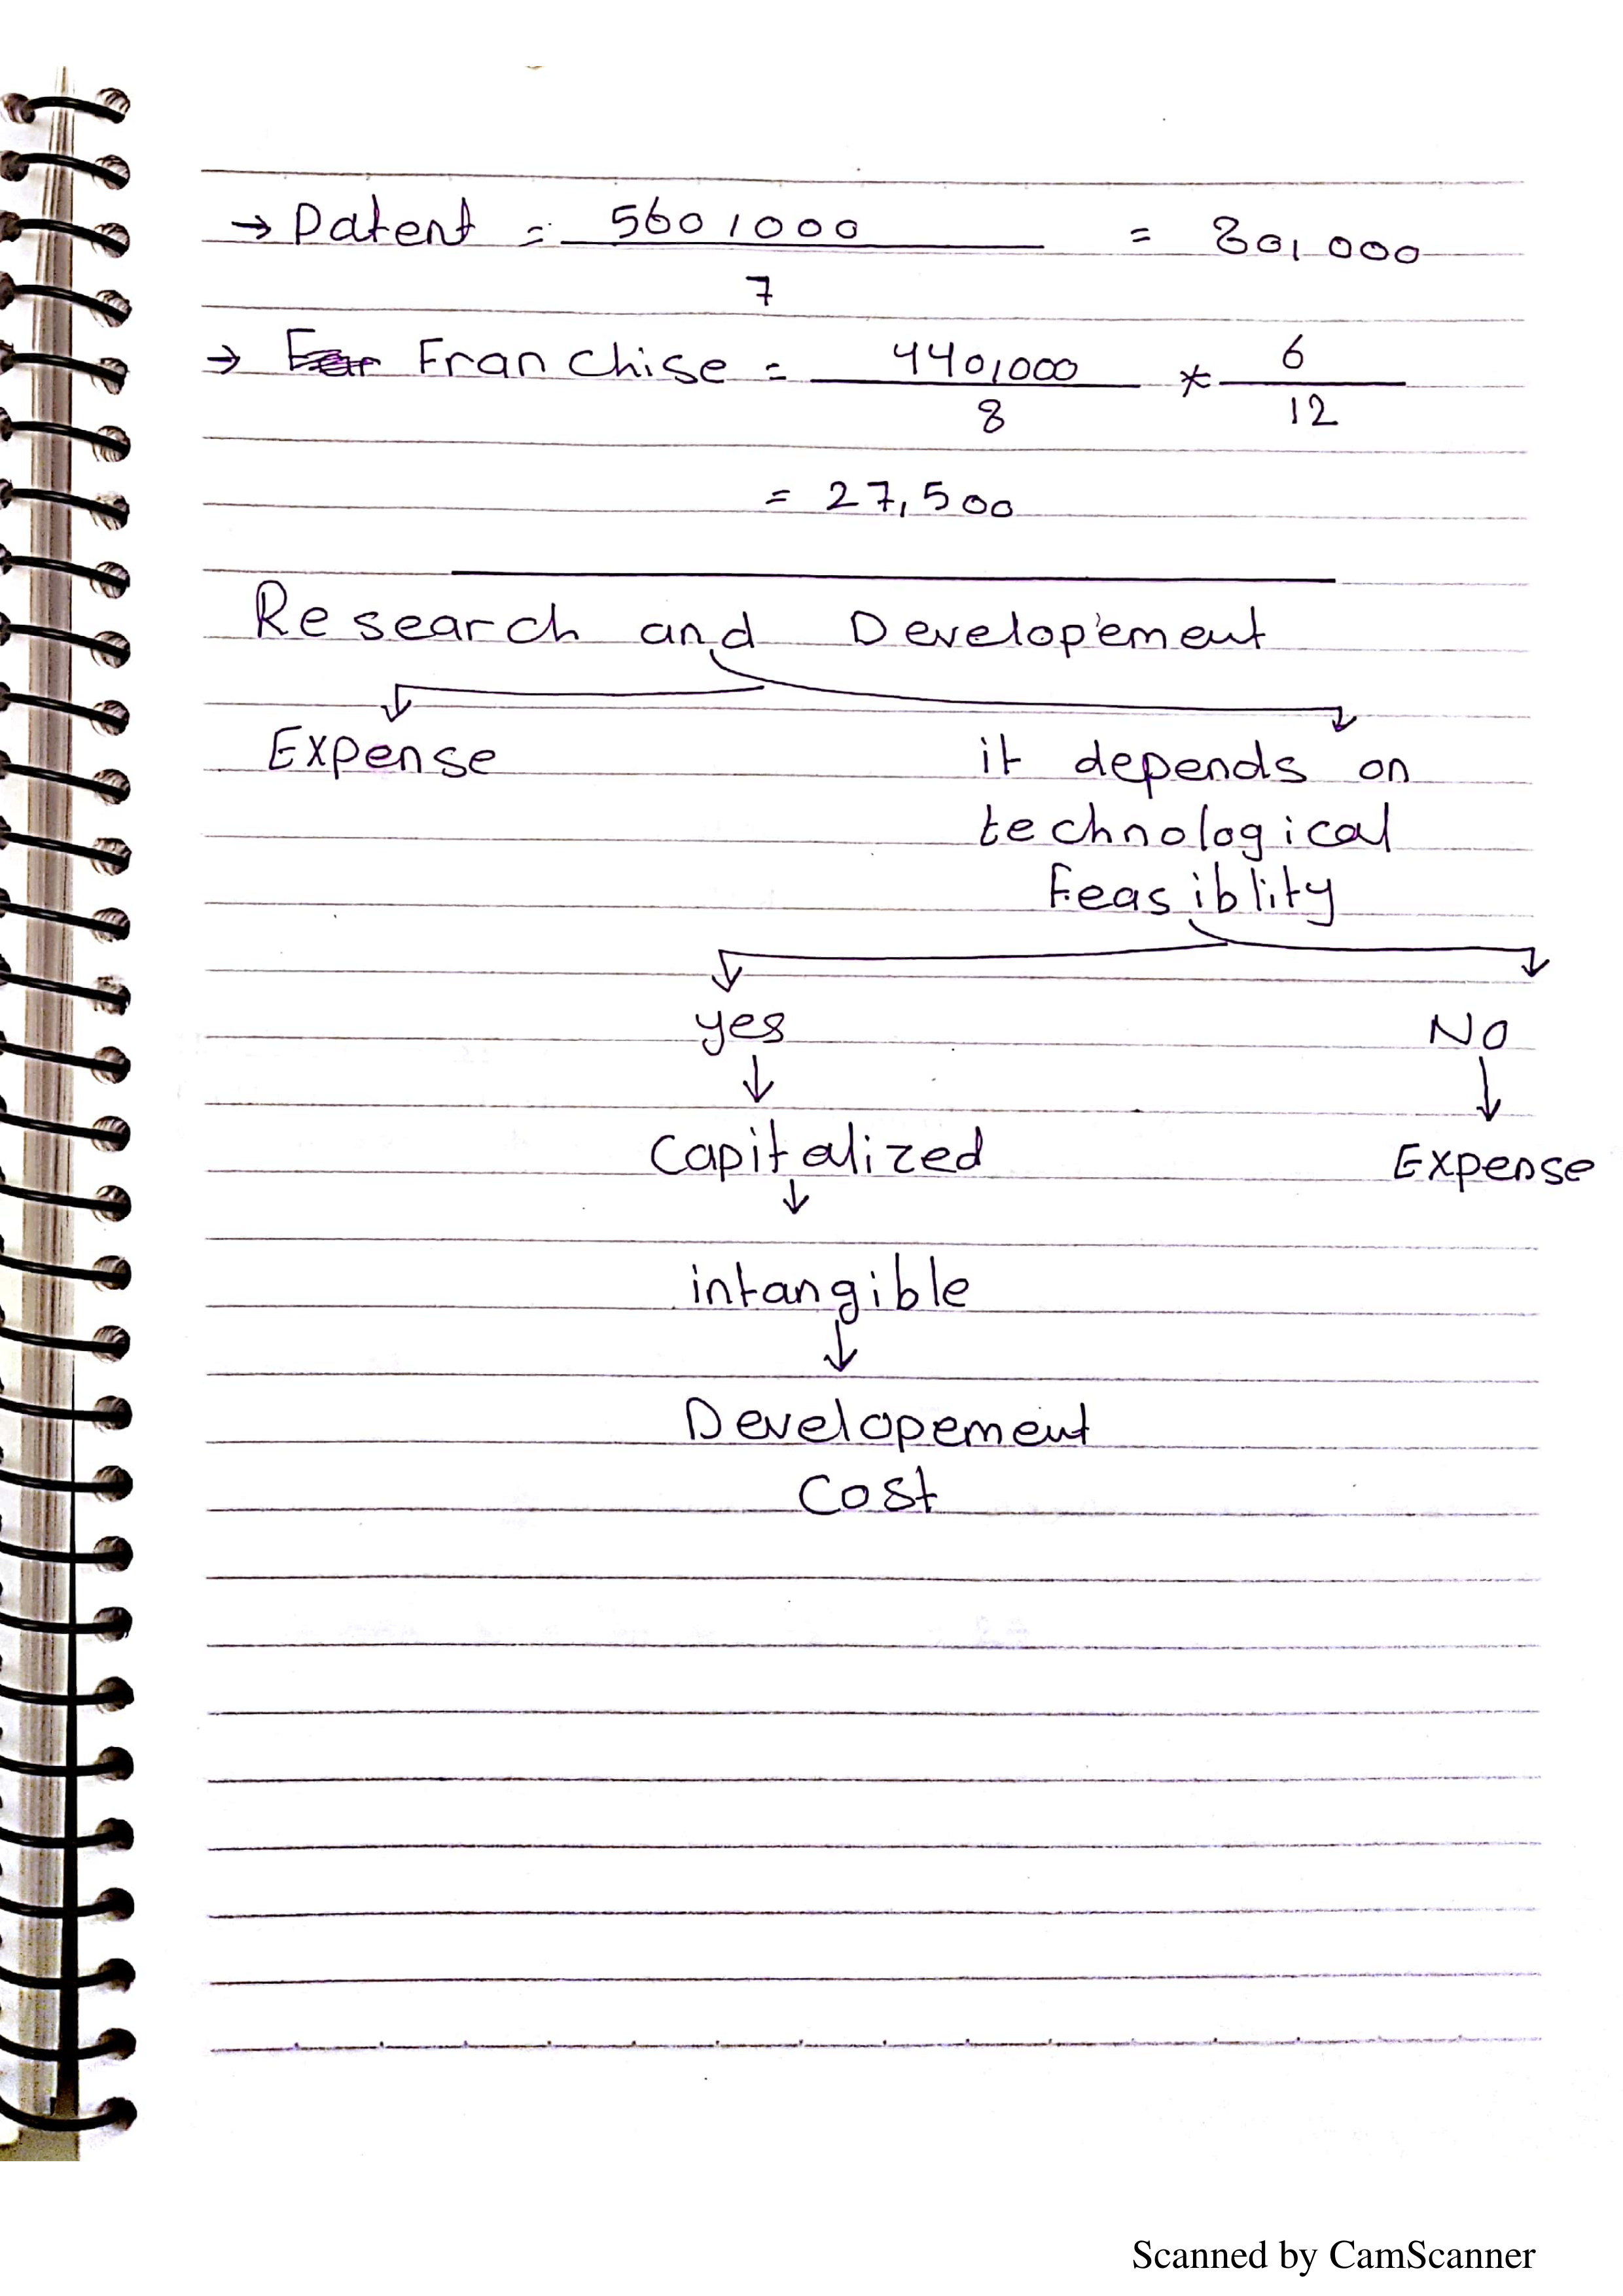 → Patent = 560,000 / 7 = 80,000
→ Franchise = 440,000 / 8 * 6 / 12
= 27,500
Research and Developement
Expense it depends on
technological
Feasiblity
yes No
↓ ↓
Capitalized Expense
↓
intangible
↓
Developement
Cost
Scanned by CamScanner